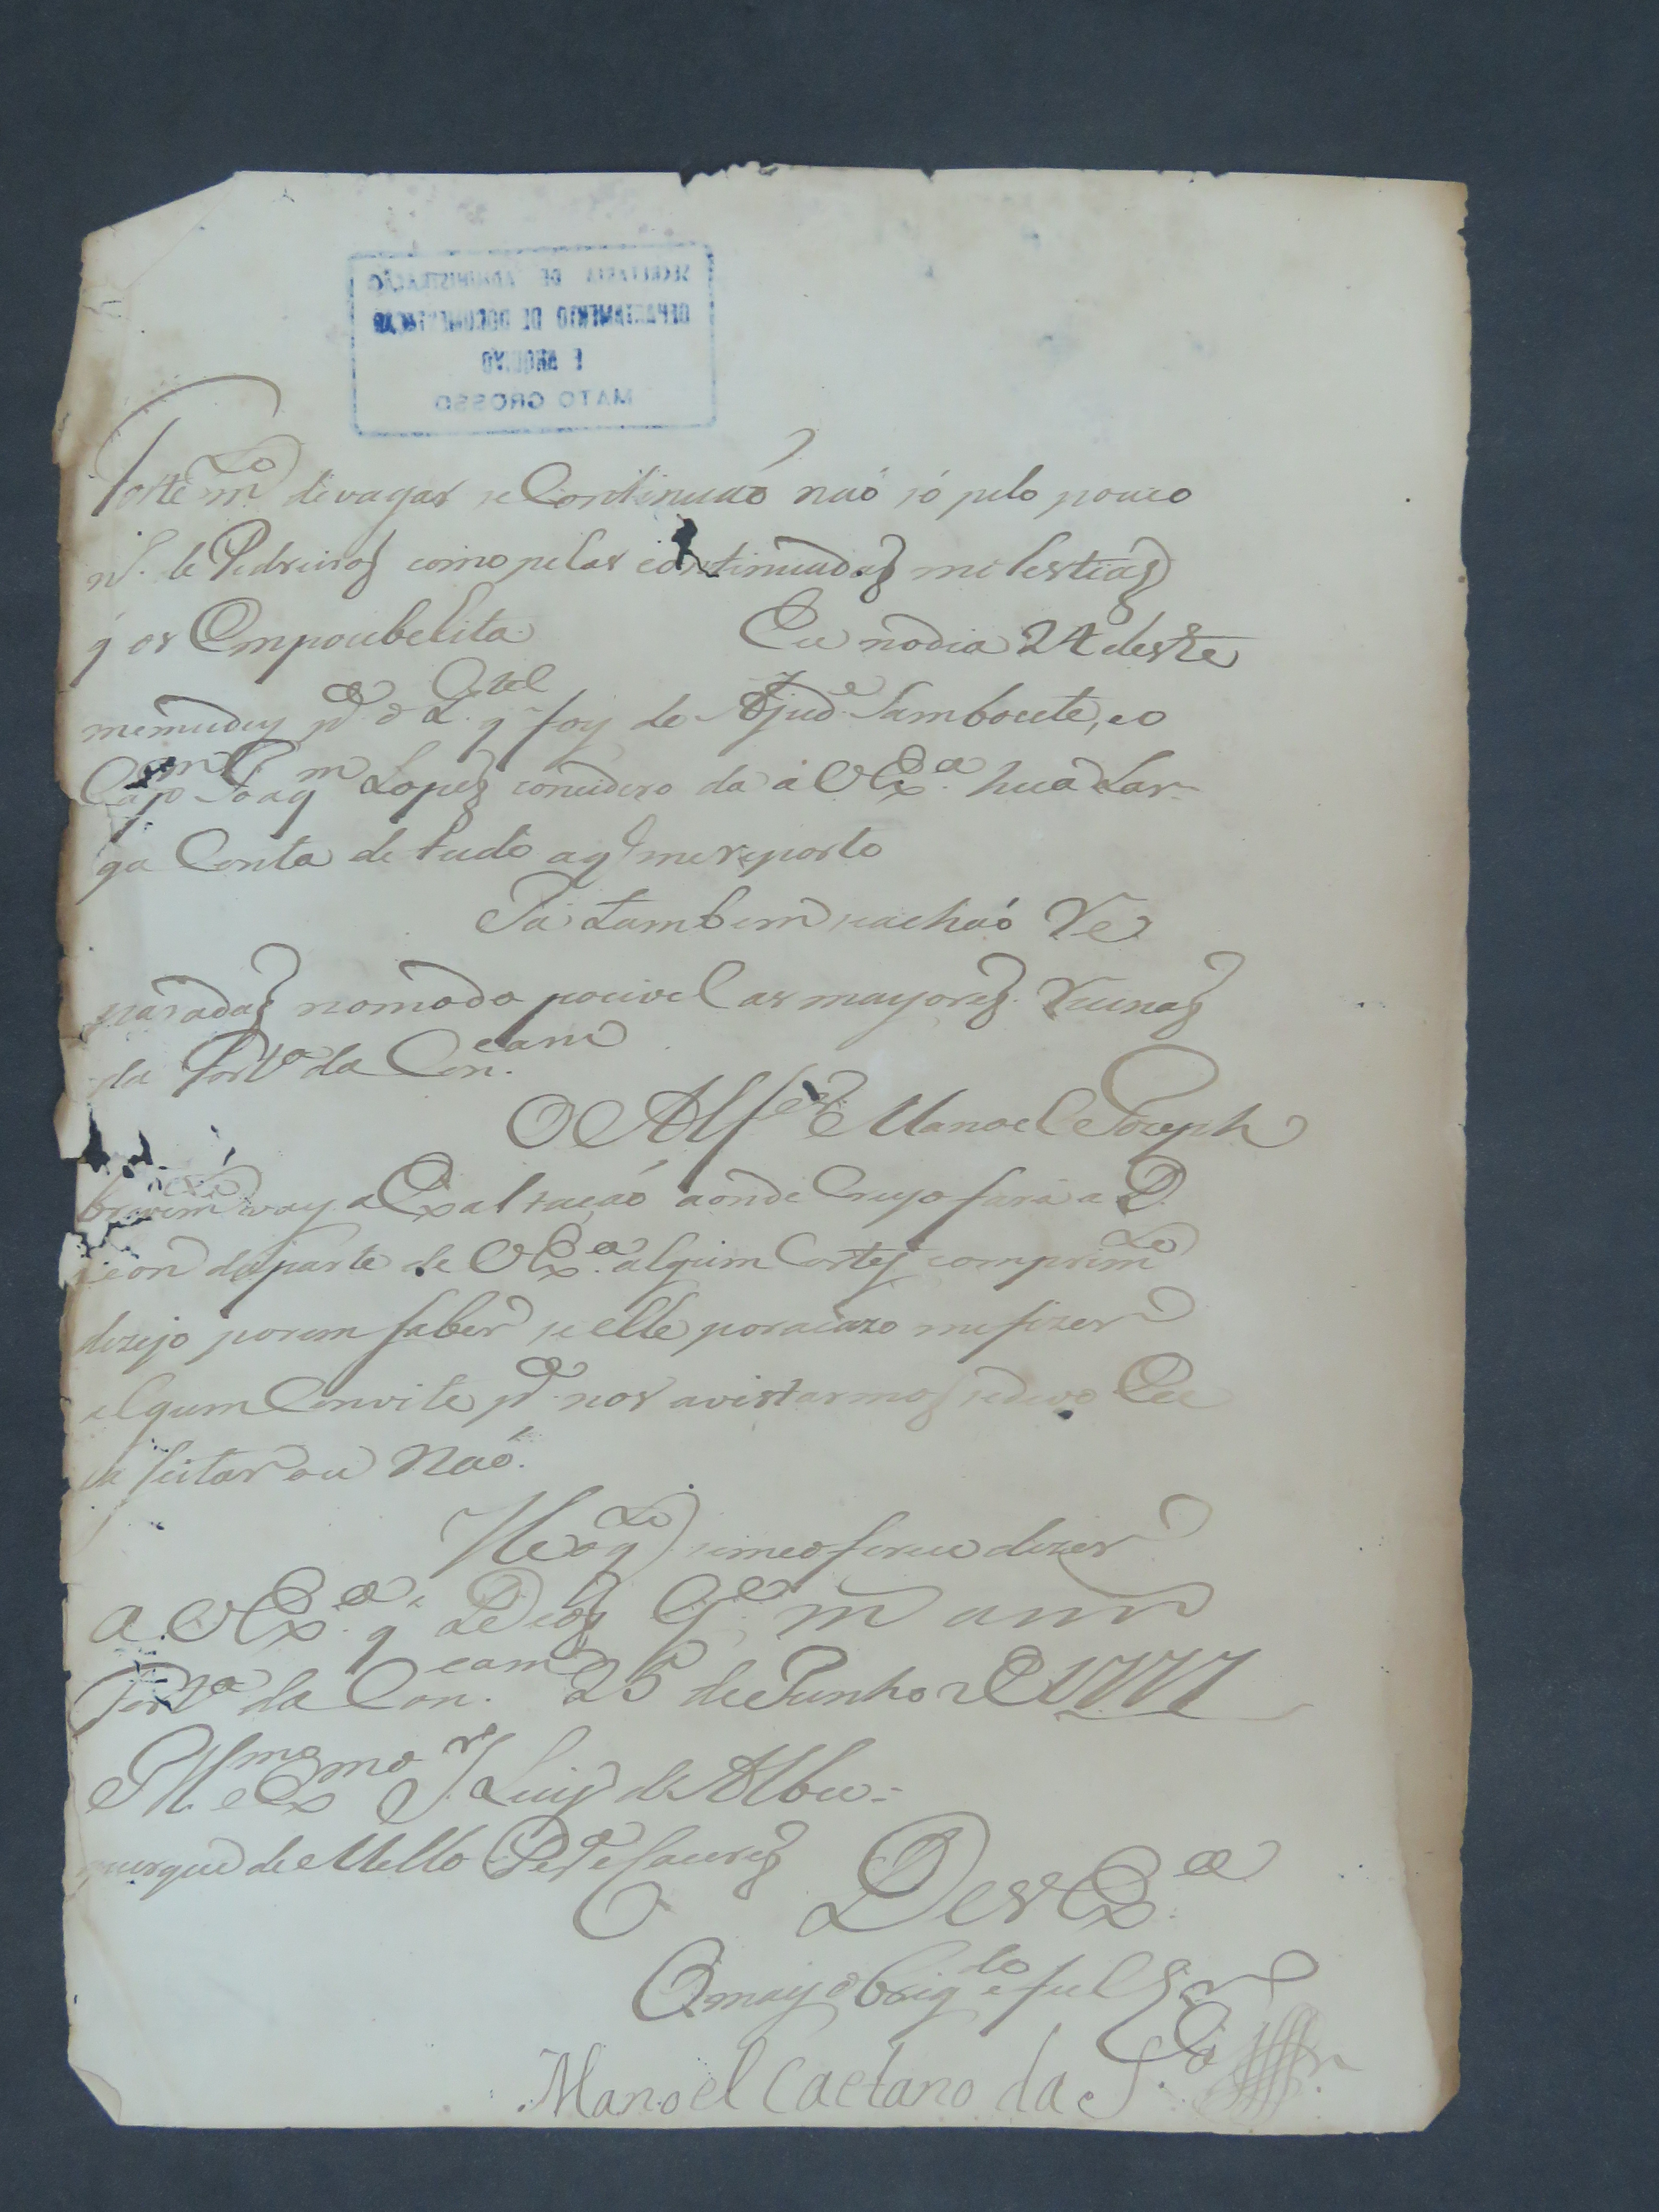 SECRETARIA DE ADMINISTRAÇÃO
DEPARTAMENTO DE DOCUMENTAÇÃO
E ARQUIVO
MATO GROSSO
fortem.to devagar se Continuaó naó só pelo pouco
nº. de Pedreiros como pelas continuadas molestias
q os Empocibelita Eu no dia 24 deste
me mudey p.a o q.tel q foy do Ajud.e Sambocete, eo
Cap.m Joaq.m Lopes conudero da a V Ex.a hua Lar-
ga Conta de tudo aq me reporto
Ja tambem seachaó Re
paradas nomodo pocivel as mayores Ruinas
da Fort.a da Con.cam
O Alf.es Manoel Joseph
brevem.te vay a Exaltaçaó aonde Cuyo fará a D.
Leon da parte de V Ex.a algum Cortes comprim.to
dezejo porem saber se elle poracazo me fizer
algum Convite p.a nos avistarmos se devo Eu
a seitar ou Naó.
He oq.to seme oferece dizer
a V Ex.a q D.s G.e m ann
Fort.a da Con.cam 25 de Junho de 1777
Ill.mo e Ex.mo S.r Luis de Albu-
querque de Mello Per.a e Caceres
De V Ex.a
O may obrig.do e fiel
Manoel Caetano da S.a